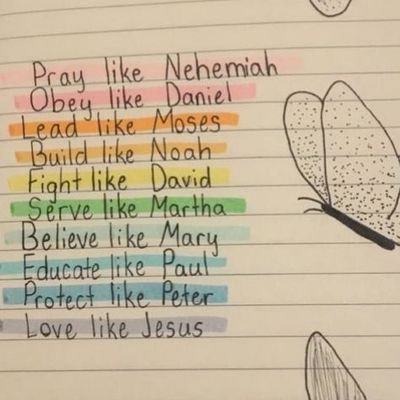 Pray like Nehemiah
Obey like Daniel
Lead like Moses
Build like Noah
Fight like David
Serve like Martha
Believe like Mary
Educate like Paul
Protect like Peter
Love like Jesus